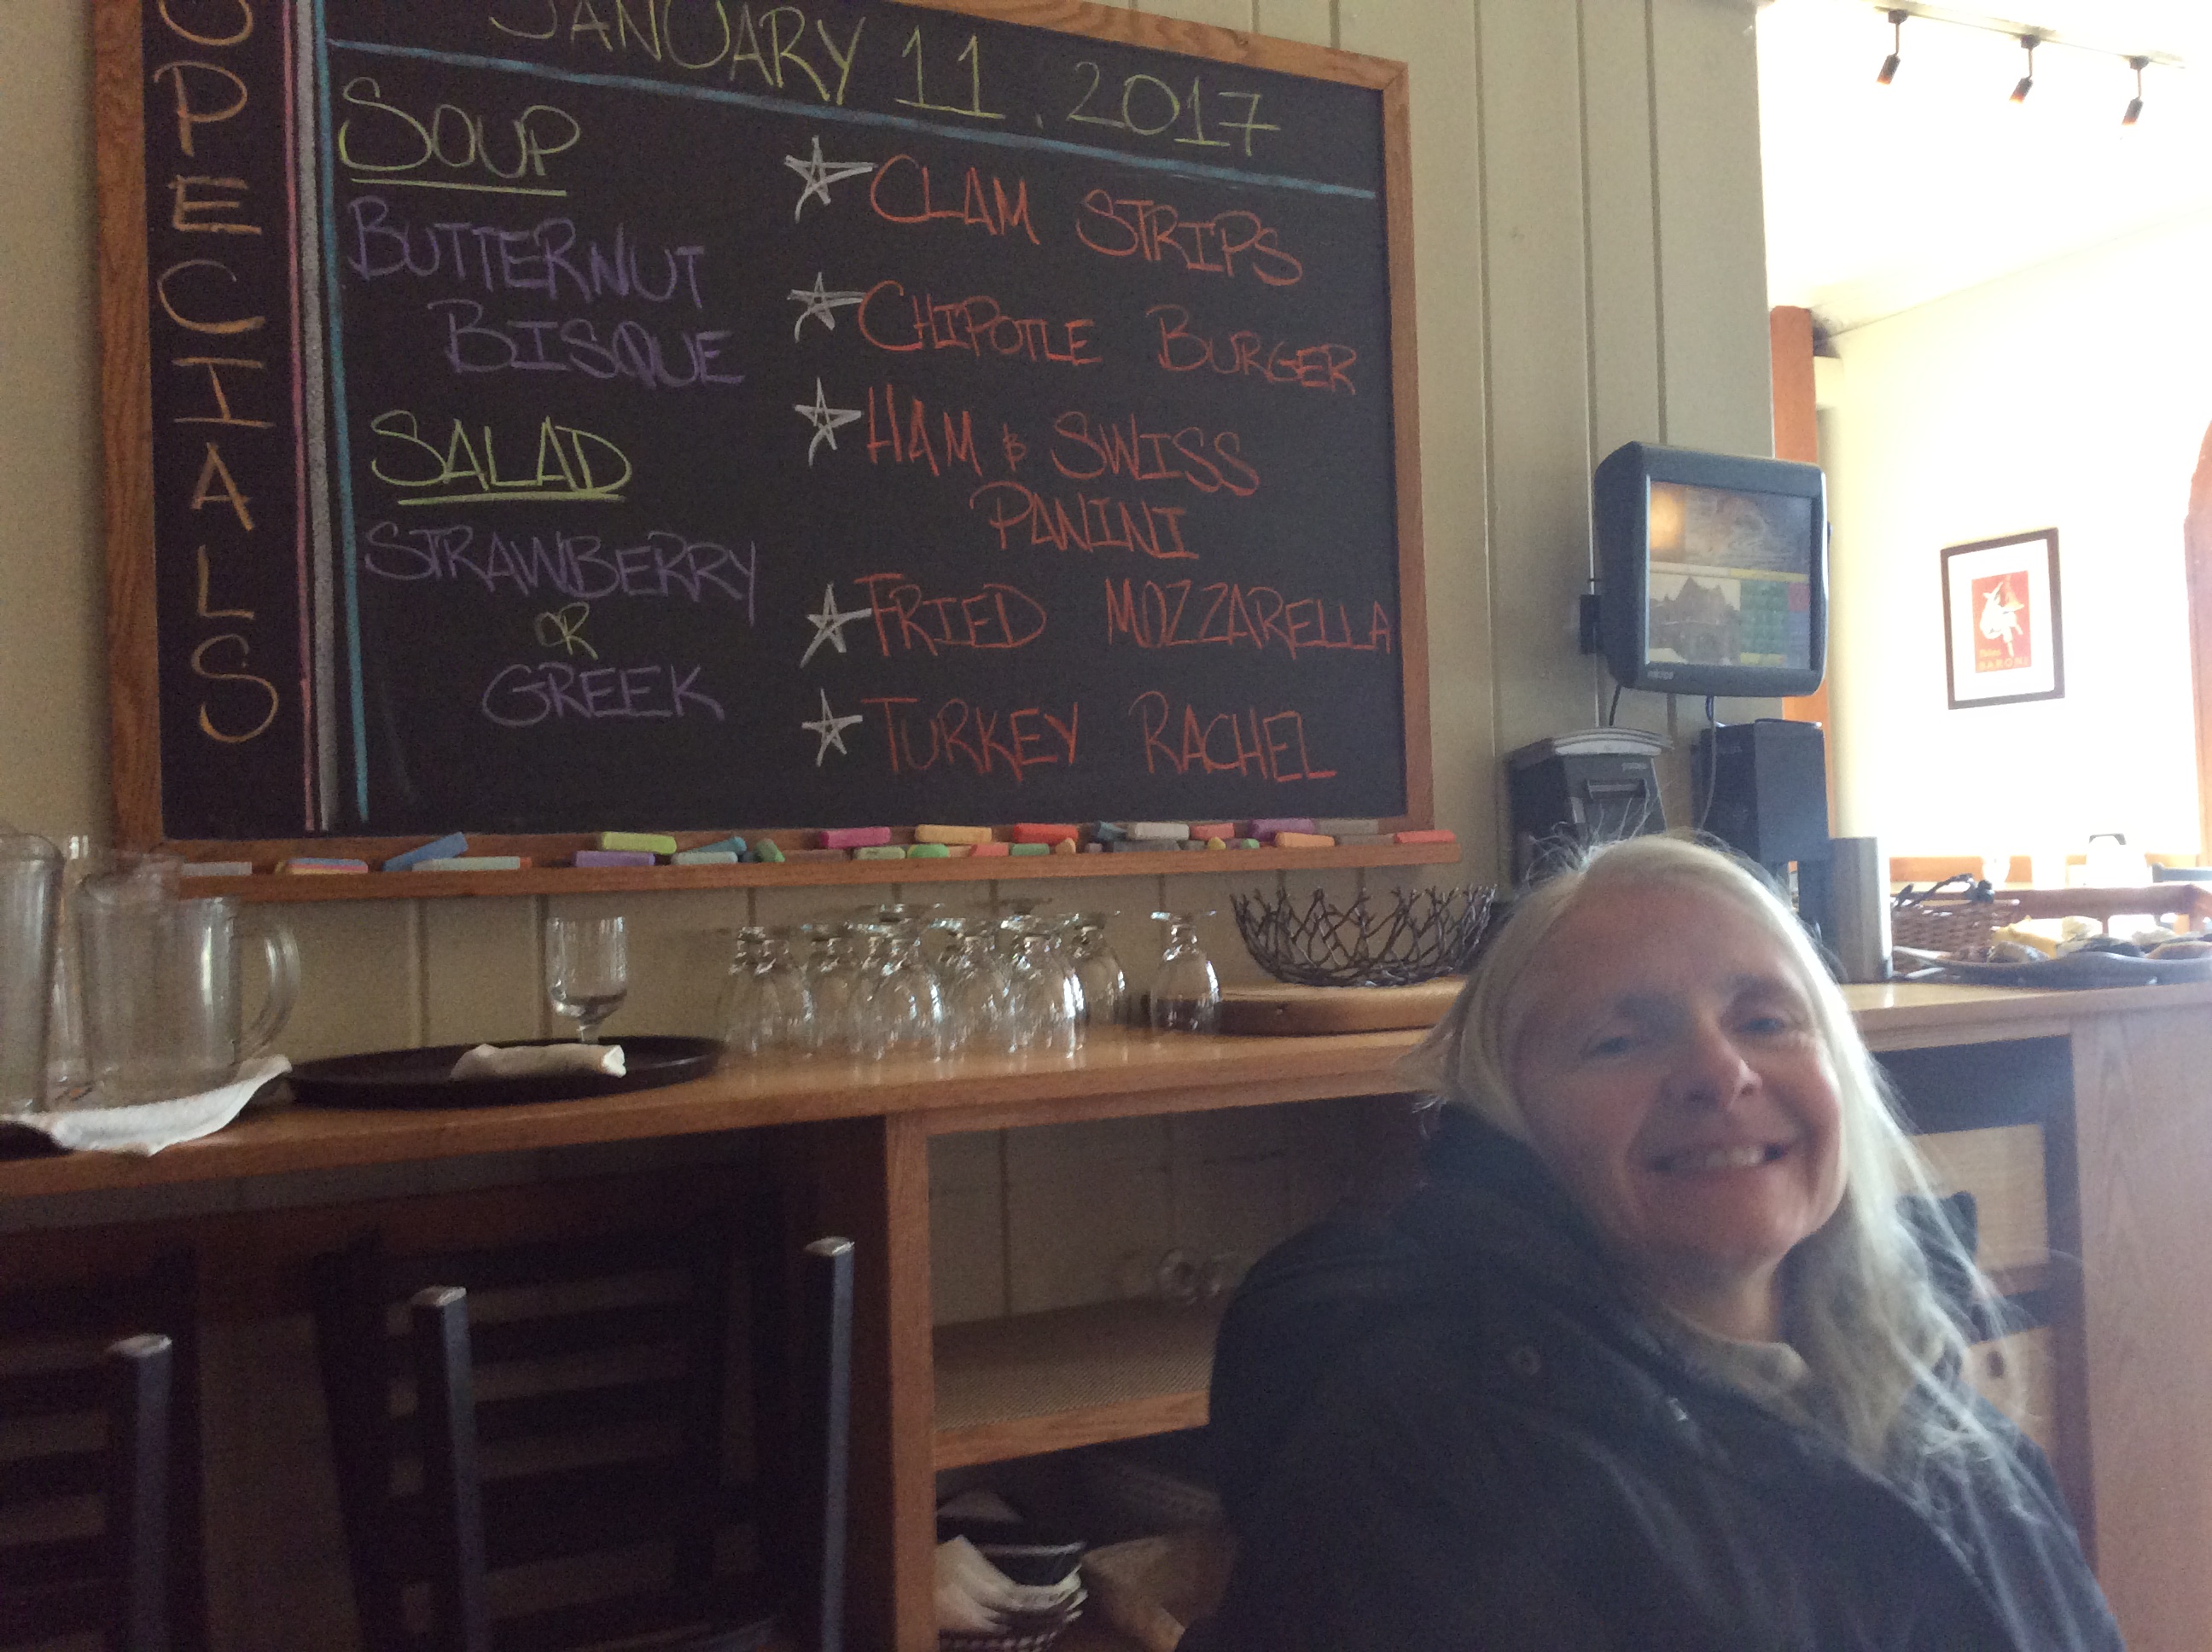 SPECIALS
JANUARY 11, 2017
SOUP
BUTTERNUT
BISQUE
SALAD
STRAWBERRY
OR
GREEK
CLAM STRIPS
CHIPOTLE BURGER
HAM & SWISS
PANINI
FRIED MOZZARELLA
TURKEY RACHEL
BARONI